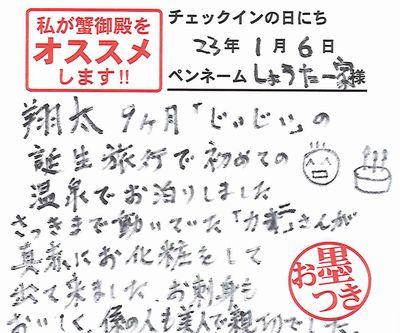 私が蟹御殿を
オススメ
します!!
チェックインの日にち
23年1月6日
ペンネーム しょうた一家様
翔太 9ヶ月「じいじい」の
誕生旅行で初めての
温泉でお泊りしました
さっきまで動いていた「カニ」さんが
真赤にお化粧をして
出て来ました。お刺身も
おいしく、係の人も美人で親切でした。
お墨
つき